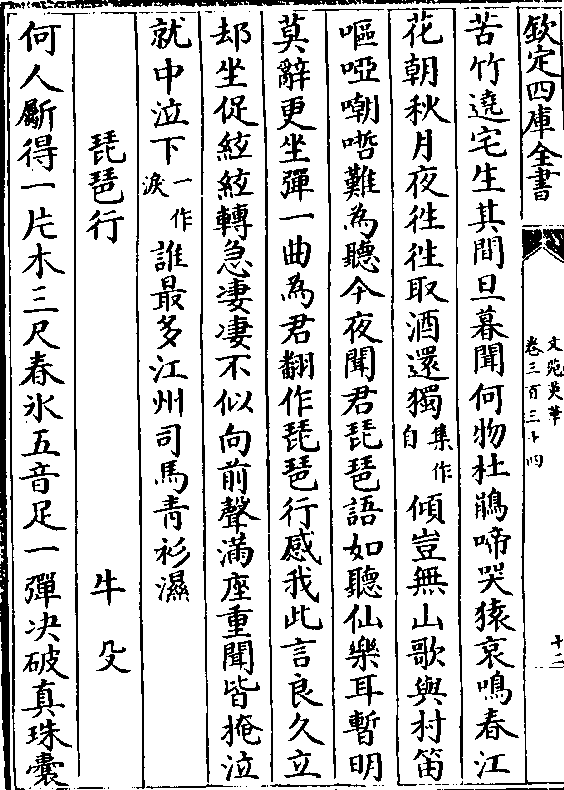 欽定四庫全書
文苑英華
卷三百三十四
十二
苦竹遶宅生其間旦暮聞何物杜鵑啼哭猿哀鳴春江
花朝秋月夜徃徃取酒還獨集作自傾豈無山歌與村笛
嘔啞嘲哳難為聽今夜聞君琵琶語如聽仙樂耳暫明
莫辭更坐彈一曲為君翻作琵琶行感我此言良久立
却坐促絃絃轉急凄凄不似向前聲滿座重聞皆掩泣
就中泣下一作淚誰最多江州司馬青衫濕
琵琶行　牛殳
何人斸得一片木三尺春氷五音足一彈決破真珠囊